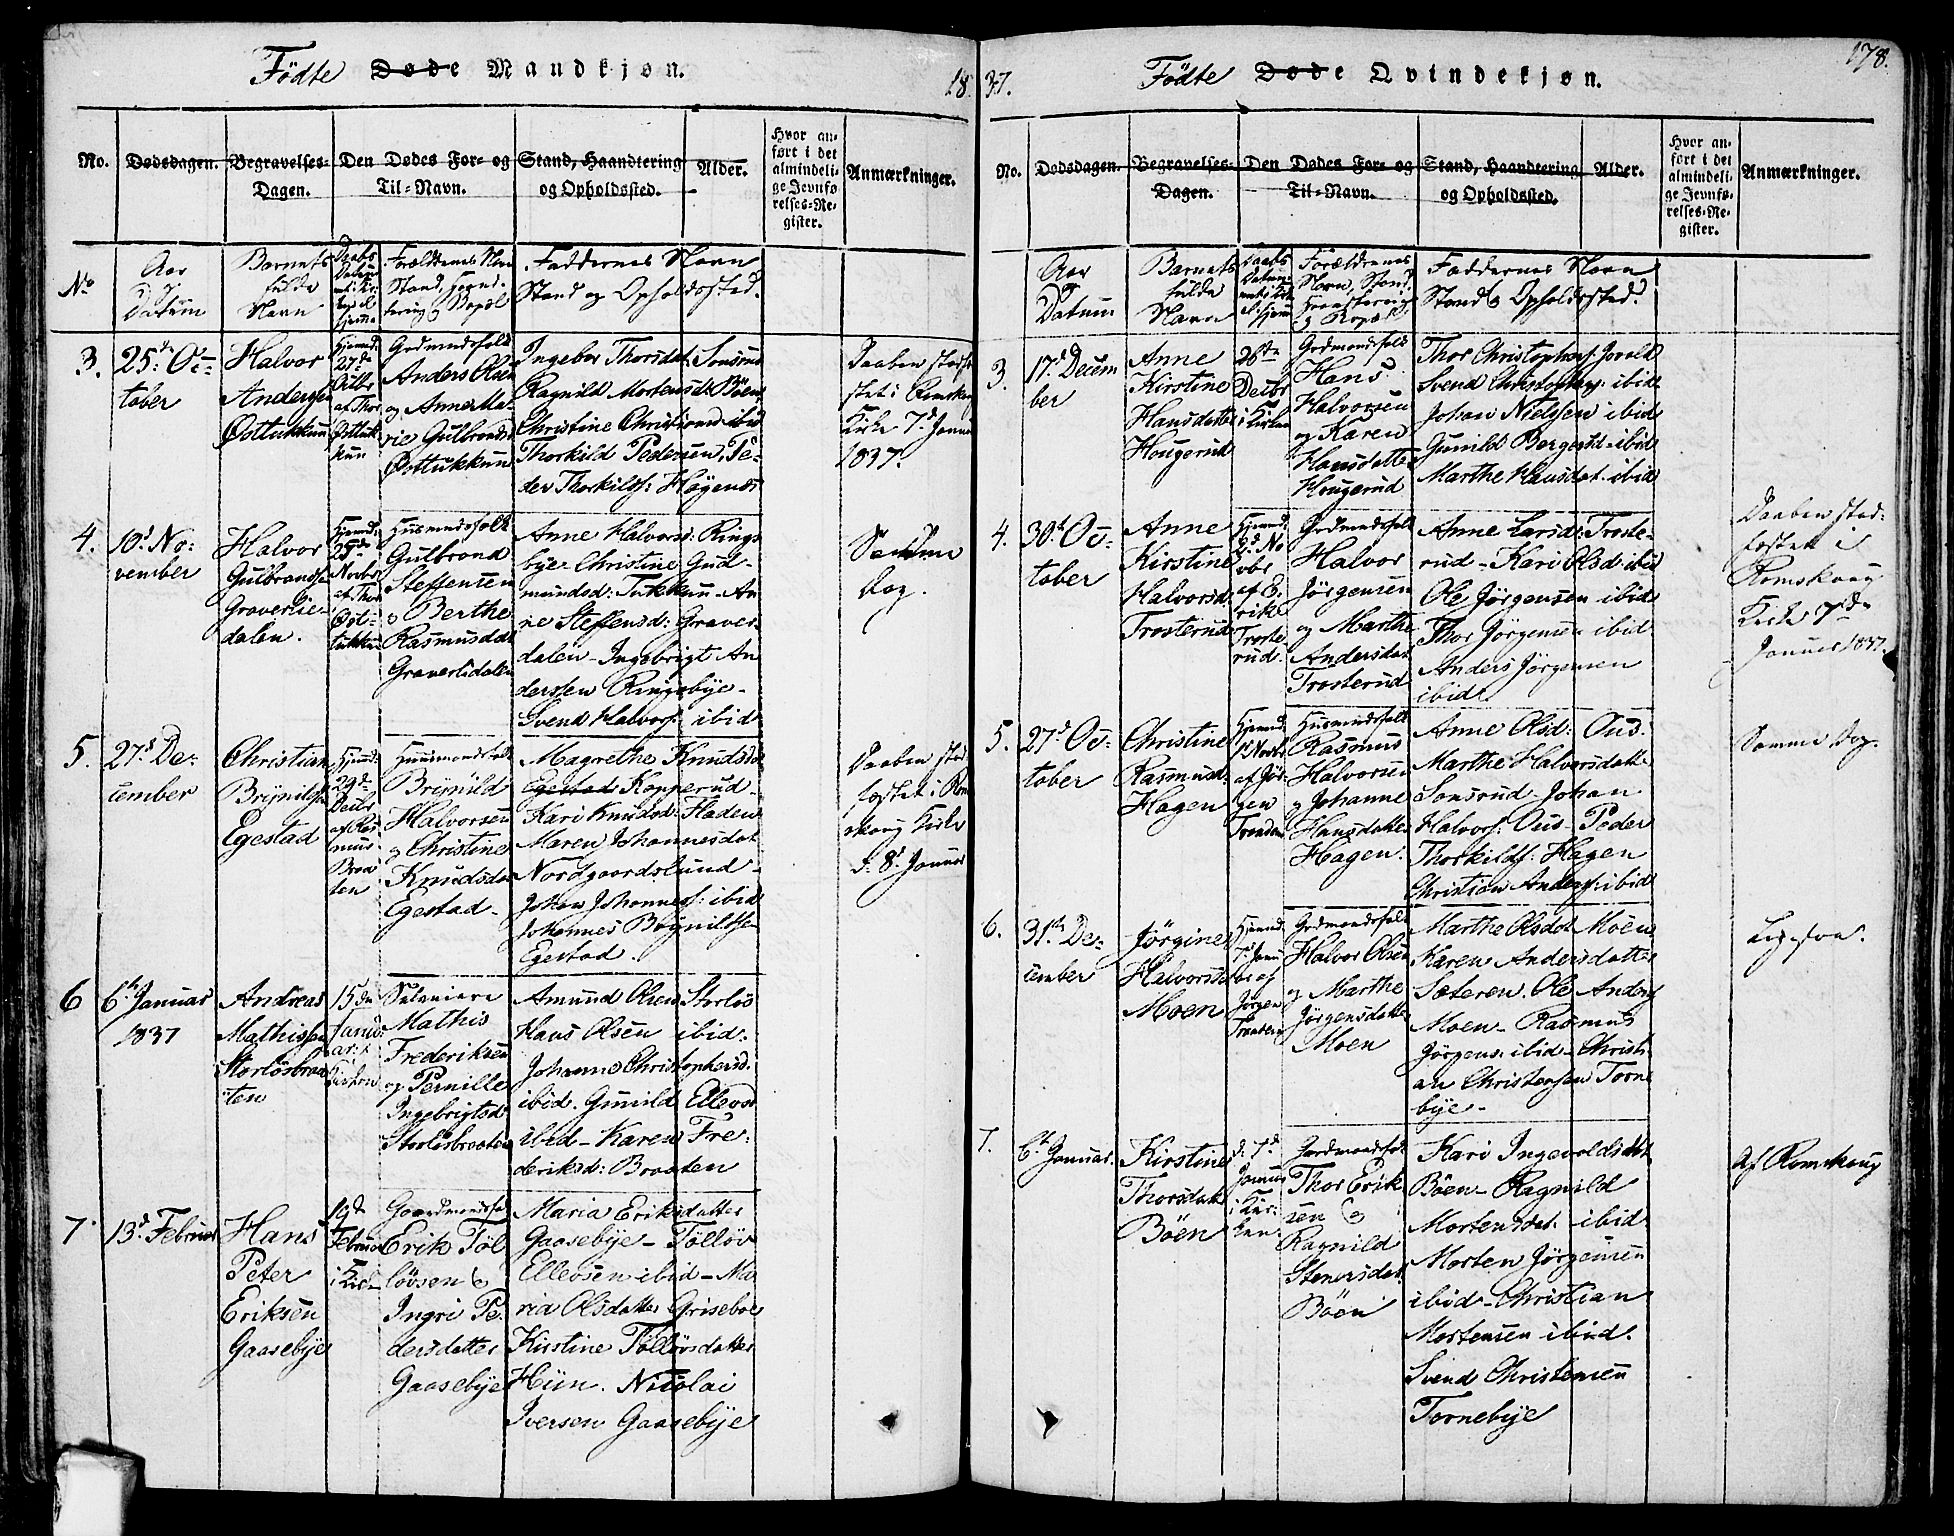 Födte Døde Mandkjøn.
18
No.
Dødsdagen.
Begravelses-
Dagen.
Den Dødes For- og
Til-Navn.
Stand, Haandtering
og Opholdssted.
Alder.
Hvor an-
ført i det
almindeli-
ge Jevnfø
relses-Re-
gister.
Anmærkninger.
No
Aar
og
Datum
Barnets
fulde
Navn
Daabs
Datum
Forældrenes Navn
Stand,
tering og Bopæl
Faddernes Navn
Stand og Opholdssted.
3.
25de Oc-
tober
Halvor
Andersen
Østtukkun
Hjemd:
27de
Octbr
af Thor
Østtuk-
kun
Grdmandsfolk
Anders Olsen
og Anne Ma-
rie Gulbrandsd
Østtukkun
Ingebor Thorsdat. Sonsrud
Ragnild Mortensdt Böen
Christine Christiansd ibid
Thorkild Pedersen, Pe-
der Thorkilds: Høgenæs
Daaben stadfæ-
stet i Romskoug
Kirke 7d Januar
1837.
4.
10d No-
vember
Halvor
Gulbrandsen
Graverlie-
dalen.
Hjemd:
25de
Novbr
af Thor
Øst-
tukkun
Husmandsfolk
Gulbrand
Steffensen
og Berthe
Rasmusdat
Graverlidalen
Anne Halvorsd: Rings
bye- Christine Gud-
mundsd: Tukkun- An
ne Steffensd: Graver-
dalen- Ingebrigt An
dersten Ringsbye-
Svend Halvors: ibid
Samme
Dag.
5.
27d De-
cember
Christian
Brynilsen
Egestad
Hjemd:
29de
Decbr
af Ras
mus
Braa
ten
Huusmandsfolk
Brynild
Halvorsen
og Christine
Knudsdat
Egestad-
Magrethe Knudsdat
Egestad Kopperud-
Kari Knudsd: Fladen
Maren Johannesdat
Nordgaardslund-
Johan Johannes: ibid
Johannes Brynildsen
Egestad.
Daaben stad
fæstet i Rom
skoug Kirke
d. 8d Januar
6
6te Januar
1837
Andreas
Mathissen
Storlösbraa
ten
15de
Janu-
ar i
Kirken
Mathis
Frederiksen
og Pernille
Ingebrigtsd
Storlösbraaten
Amund Olsen Storlös
Hans Olsen ibid:
Johanne Christophersd.
ibid. Gunild Ellevsd
ibid- Karen Fre-
deriksd: Braaten
7.
13d Februar
Hans
Peter
Eriksen
Gaasebye
19de
Februar
i Kirk-
Gaardmandsfolk
Erik Töl
löwsen og
Ingri Pe-
dersdatter
Gaasebye
Maria Eriksdatter
Gaasebye- Tölløv
Ellevsen ibid- Ma
ria Olsdatter Griseboe
Kirstine Tölløvsdatter
Hiin. Nicolai
Iversen Gaasebye
37.
Födte Døde Qvindekjøn.
178.
No.
Dødsdagen.
Begravelses-
Dagen.
Den Dødes For- og
Til-Navn.
Stand, Haandtering
og Opholdssted.
Alder.
Hvor an-
ført i det
almindeli-
ge Jevnfø-
relses-Re-
gister.
Anmærkninger.
Aar
og
Datum
Barnets
fulde
Navn
Daabs
Datum
Forældrenes
Navn, Stand,
Haandtering
og Bopæl
Faddernes Navn
Stand og Opholdssted.
3.
17d Decem
ber
Anne
Kirstine
Hansdatter
Hougerud
26de
Decbr
i Kirken
Grdmandsfolk
Hans
Halvorsen
og Karen
Hansdatter
Hougerud
Thor Christophers: Jovald
Svend Christophers: ibid
Johan Nielsen ibid
Gunild Børgesd: ibid
Marthe Hansdat. ibid
4.
30te Oc-
tober
Anne
Kirstine
Halvorsd.
Trosterud
Hjemd:
2d No
vbr
af E-
rik
Troste
rud.
Grdmandsfolk
Halvor
Jörgensen
og Marthe
Andersdat
Trosterud
Anne Larsd: Troste-
rud- Kari Olsd: ibid
Ole Jörgensen ibid
Thor Jörgensen ibid
Anders Jörgensen
ibid
Daaben stad-
fæstet i
Romskoug
Kirke 7de
Januar 1837.
5.
27d Oc-
tober
Christine
Rasmusd:
Hagen
Hjemd:
1d Novbr
af Jör-
gen
Tronden
Husmandsfolk
Rasmus
Halvorsen
og Johanne
Hansdatter
Hagen.
Anne Olsd: Ous.
Marthe Halvorsdatt-
Sonsrud- Johan
Halvors: Ous- Peder
Thorkilds: Hagen
Christian Anders: ibid
Samme Dag.
6.
31te De-
cember
Jörgine
Halvorsdt
Moen
Hjemd:
7d Janu
ar af
Jörgen
Tronden
Grdmandsfolk
Halvor Olsen
og Marthe
Jörgensdatter
Moen
Marthe Olsdt. Moen
Karen Andersdatter
Sæteren. Ole Anders
Moen- Rasmus
Jörgens: ibid- Christi-
an Christensen Torne
bye-
Ligesaa.
7.
6te Januar.
Kirstine
Thorsdat
Böen
d. 7d
Januar
i Kir-
ken.
Gardmandsfol
Thor Erik
sen og
Ragnild
Stenersdat
Böen
Kari Ingevoldsdat
Böen- Ragnild
Mortensdat. ibid
Morten Jörgensen
ibid- Christian
Mortensen ibid.
Svend Christensen
Tornebye
Af Romskoug